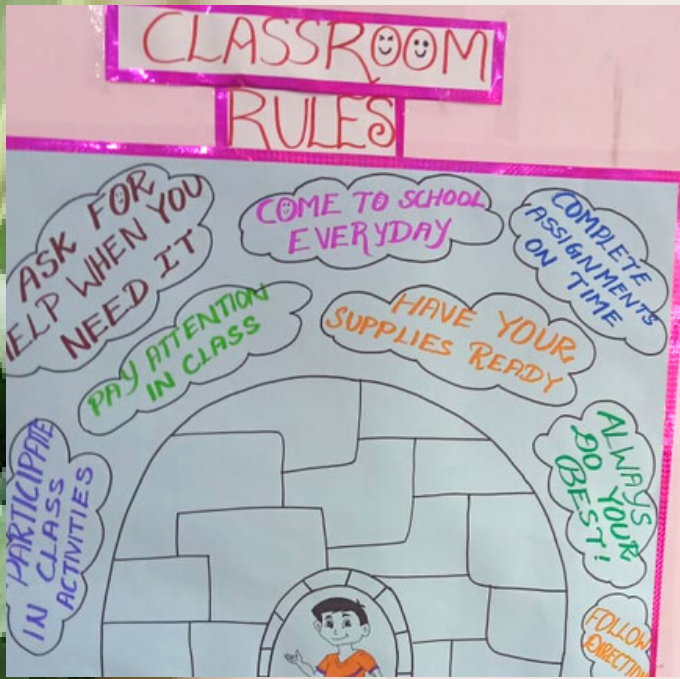 CLASSROOM
RULES
ASK FOR
HELP WHEN YOU
NEED IT
COME TO SCHOOL
EVERYDAY
COMPLETE
ASSIGNMENTS
ON TIME
PAY ATTENTION
IN CLASS
HAVE YOUR
SUPPLIES READY
PARTICIPATE
IN CLASS
ACTIVITIES
ALWAYS
DO YOUR
BEST!
FOLLOW
DIRECTION